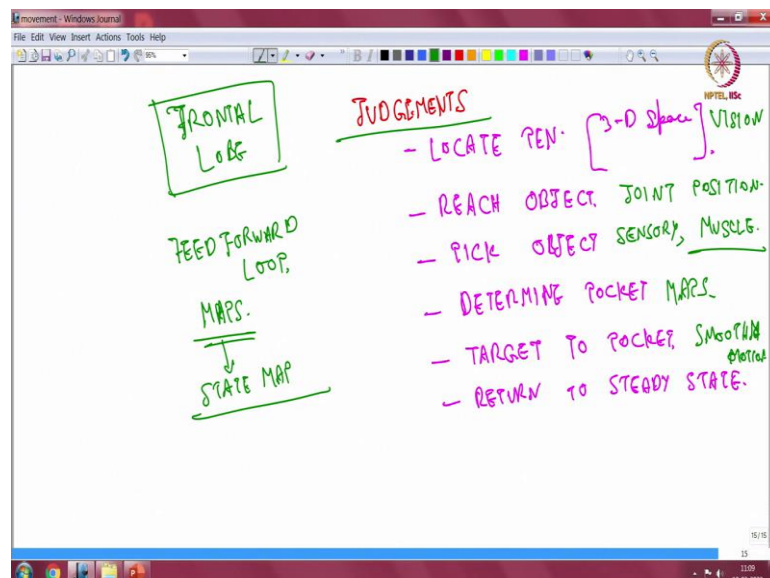 movement - Windows Journal
File Edit View Insert Actions Tools Help
95%
NPTEL, IISc
FRONTAL
LOBE
FEED FORWARD
LOOP,
MAPS.
STATE MAP
JUDGEMENTS
- LOCATE PEN. [3-D Space]. VISION
- REACH OBJECT. JOINT POSITION.
- PICK OBJECT SENSORY, MUSCLE.
- DETERMINE POCKET MAPS.
- TARGET TO POCKET. SMOOTH
MOTION
- RETURN TO STEADY STATE.
15/15
15
11:09